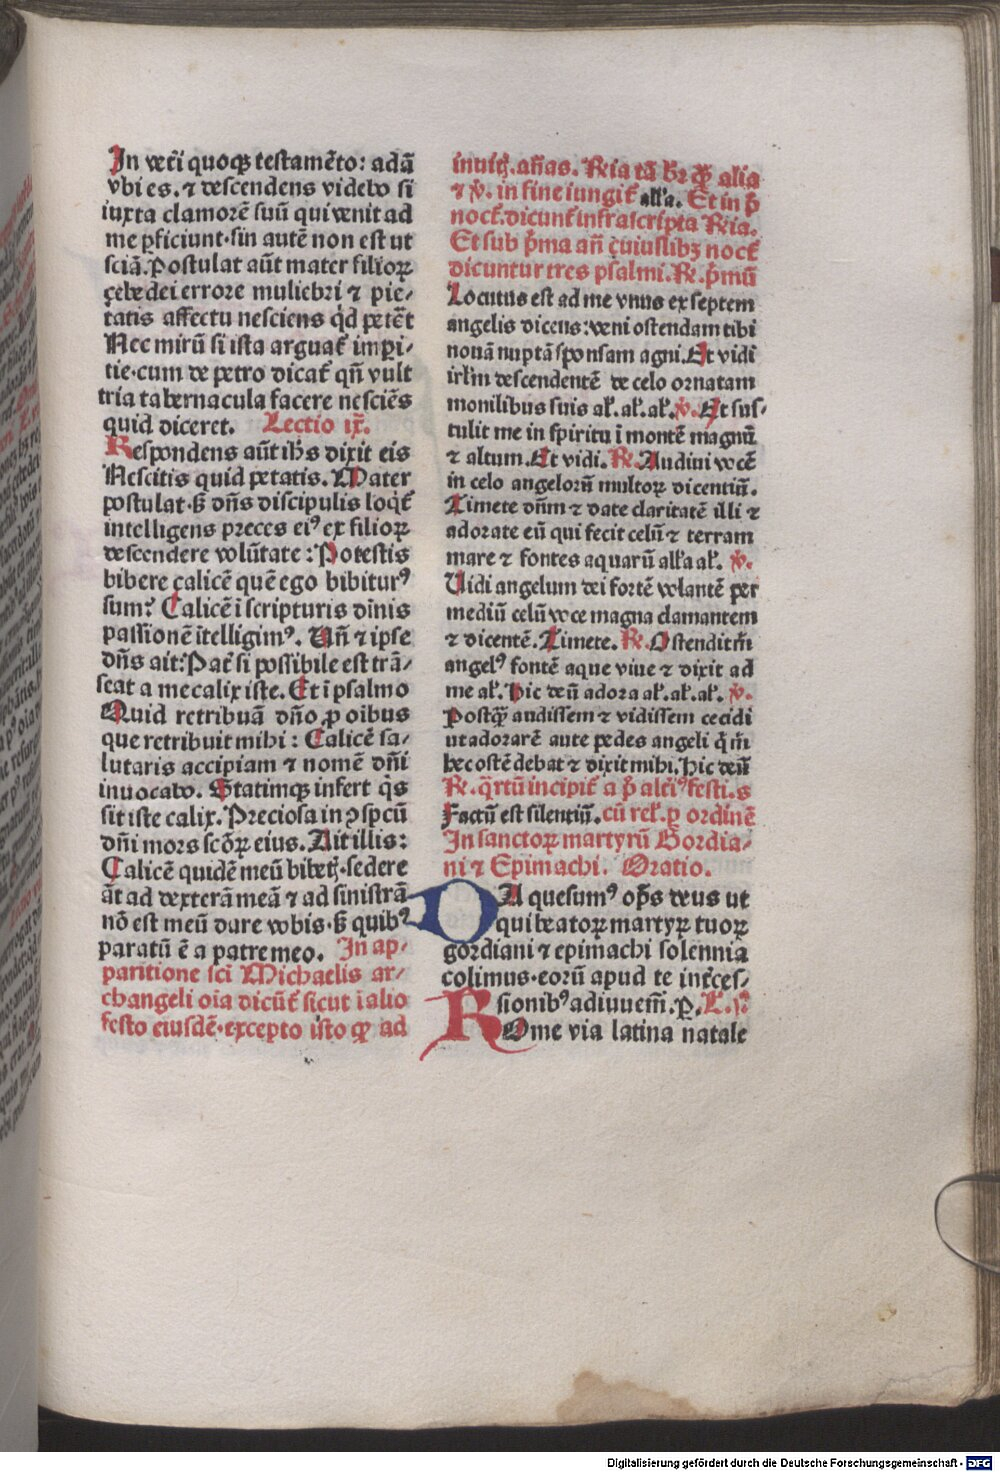 In vet̃i quoqꝫ testamẽto: adã
vbi es. ⁊ descendens videbo si
iuxta clamorẽ suũ qui venit ad
me ꝑficiunt·sin autẽ non est ut
sciã. Postulat aũt mater filioꝝ
çebedei errore muliebri ⁊ pie⸗
tatis affectu nesciens qd̃ petẽt
Nec mirũ si ista arguat̃ imꝑi⸗
tie·cum de petro dicat̃ qñ vult
tria tabernacula facere nesciẽs
quid diceret. Lectio ix̃.
Respondens aũt ih̃s dixit eis
Nescitis quid petatis. Mater
postulat·ß dñs discipulis loqt̃
intelligens preces eiꝰ ex filioꝝ
descendere volũtate: Potestis
bibere calicẽ quẽ ego bibiturꝰ
sum? Calicẽ ĩ scripturis diñis
passionẽ ĩtelligimꝰ. Uñ ⁊ ipse
dñs ait: Pat̃ si possibile est trã⸗
seat a me calix iste. Et ĩ psalmo
Quid retribuã dño ꝓ oibus
que retribuit mihi: Calicẽ sa⸗
lutaris accipiam ⁊ nomẽ dñi
inuocabo. Statimqꝫ infert qͥs
sit iste calix. Preciosa in ꝯspcũ
dñi mors scõꝝ eius. Ait illis:
Calicẽ quidẽ meũ bibetꝭ·sedere
aũt ad dexterã meã ⁊ ad sinistrã
nõ est meũ dare vobis·ß quibꝰ
paratũ ẽ a patre meo. In ap⸗
paritione sci Michaelis ar⸗
changeli oĩa dicũt̃ sicut ĩ alio
festo eiusdẽ·excepto isto qꝫ ad
inuitꝭ. añas. R̃ia tã br̃ qꝫ̃ alia
⁊ v̓. in fine iungit̃ all̓a. Et in p̃
noct̃. dicunt̃ infrascripta R̃ia.
Et sub p̃ma añ cͣuiuslibꝫ noct̃
dicuntur tres psalmi. R̃. p̃mũ
Locutus est ad me vnus ex septem
angelis dicens: veni ostendam tibi
nouã nuptã sponsam agni. Et vidi
irl̓m descendentẽ de celo ornatam
monilibus suis al̓. al̓. al̓. v̓. Et sus⸗
tulit me in spiritu ĩ montẽ magnũ
⁊ altum. Et vidi. R̃. Audiui vocẽ
in celo angeloꝝ multoꝝ dicentiũ.
Timete dñm ⁊ date claritatẽ illi ⁊
adorate eũ qui fecit celũ ⁊ terram
mare ⁊ fontes aquarũ all̓a al̓. v̓.
Uidi angelum dei fortẽ volantẽ per
mediũ celũ voce magna clamantem
⁊ dicentẽ. Timete. R̃. Ostendit m̃
angelꝰ fontẽ aque viue ⁊ dixit ad
me al̓. Hic deũ adora al̓. al̓. al̓. v̓.
Postqꝫ̃ audissem ⁊ vidissem cecidi
ut adorarẽ ante pedes angeli q̃ m̃
hec ostẽdebat ⁊ dixit mihi. Hic deũ
R̃. qͣrtũ incipit̃ a p̃ alt̓iꝰ festi. s
Factũ est silentiũ. cũ rel̓. ꝑ ordinẽ
In sanctoꝝ martyrũ Gordia⸗
ni ⁊ Epimachi. Oratio.
DA quesumꝰ op̃s deus ut
qui beatoꝝ martyꝝ tuoꝝ
gordiani ⁊ epimachi solennia
colimus·eorũ apud te int̃ces⸗
sionibꝰ adiuuem̃. ꝑ. L. i.
ROme via latina natale
Digitalisierung gefördert durch die Deutsche Forschungsgemeinschaft - DFG